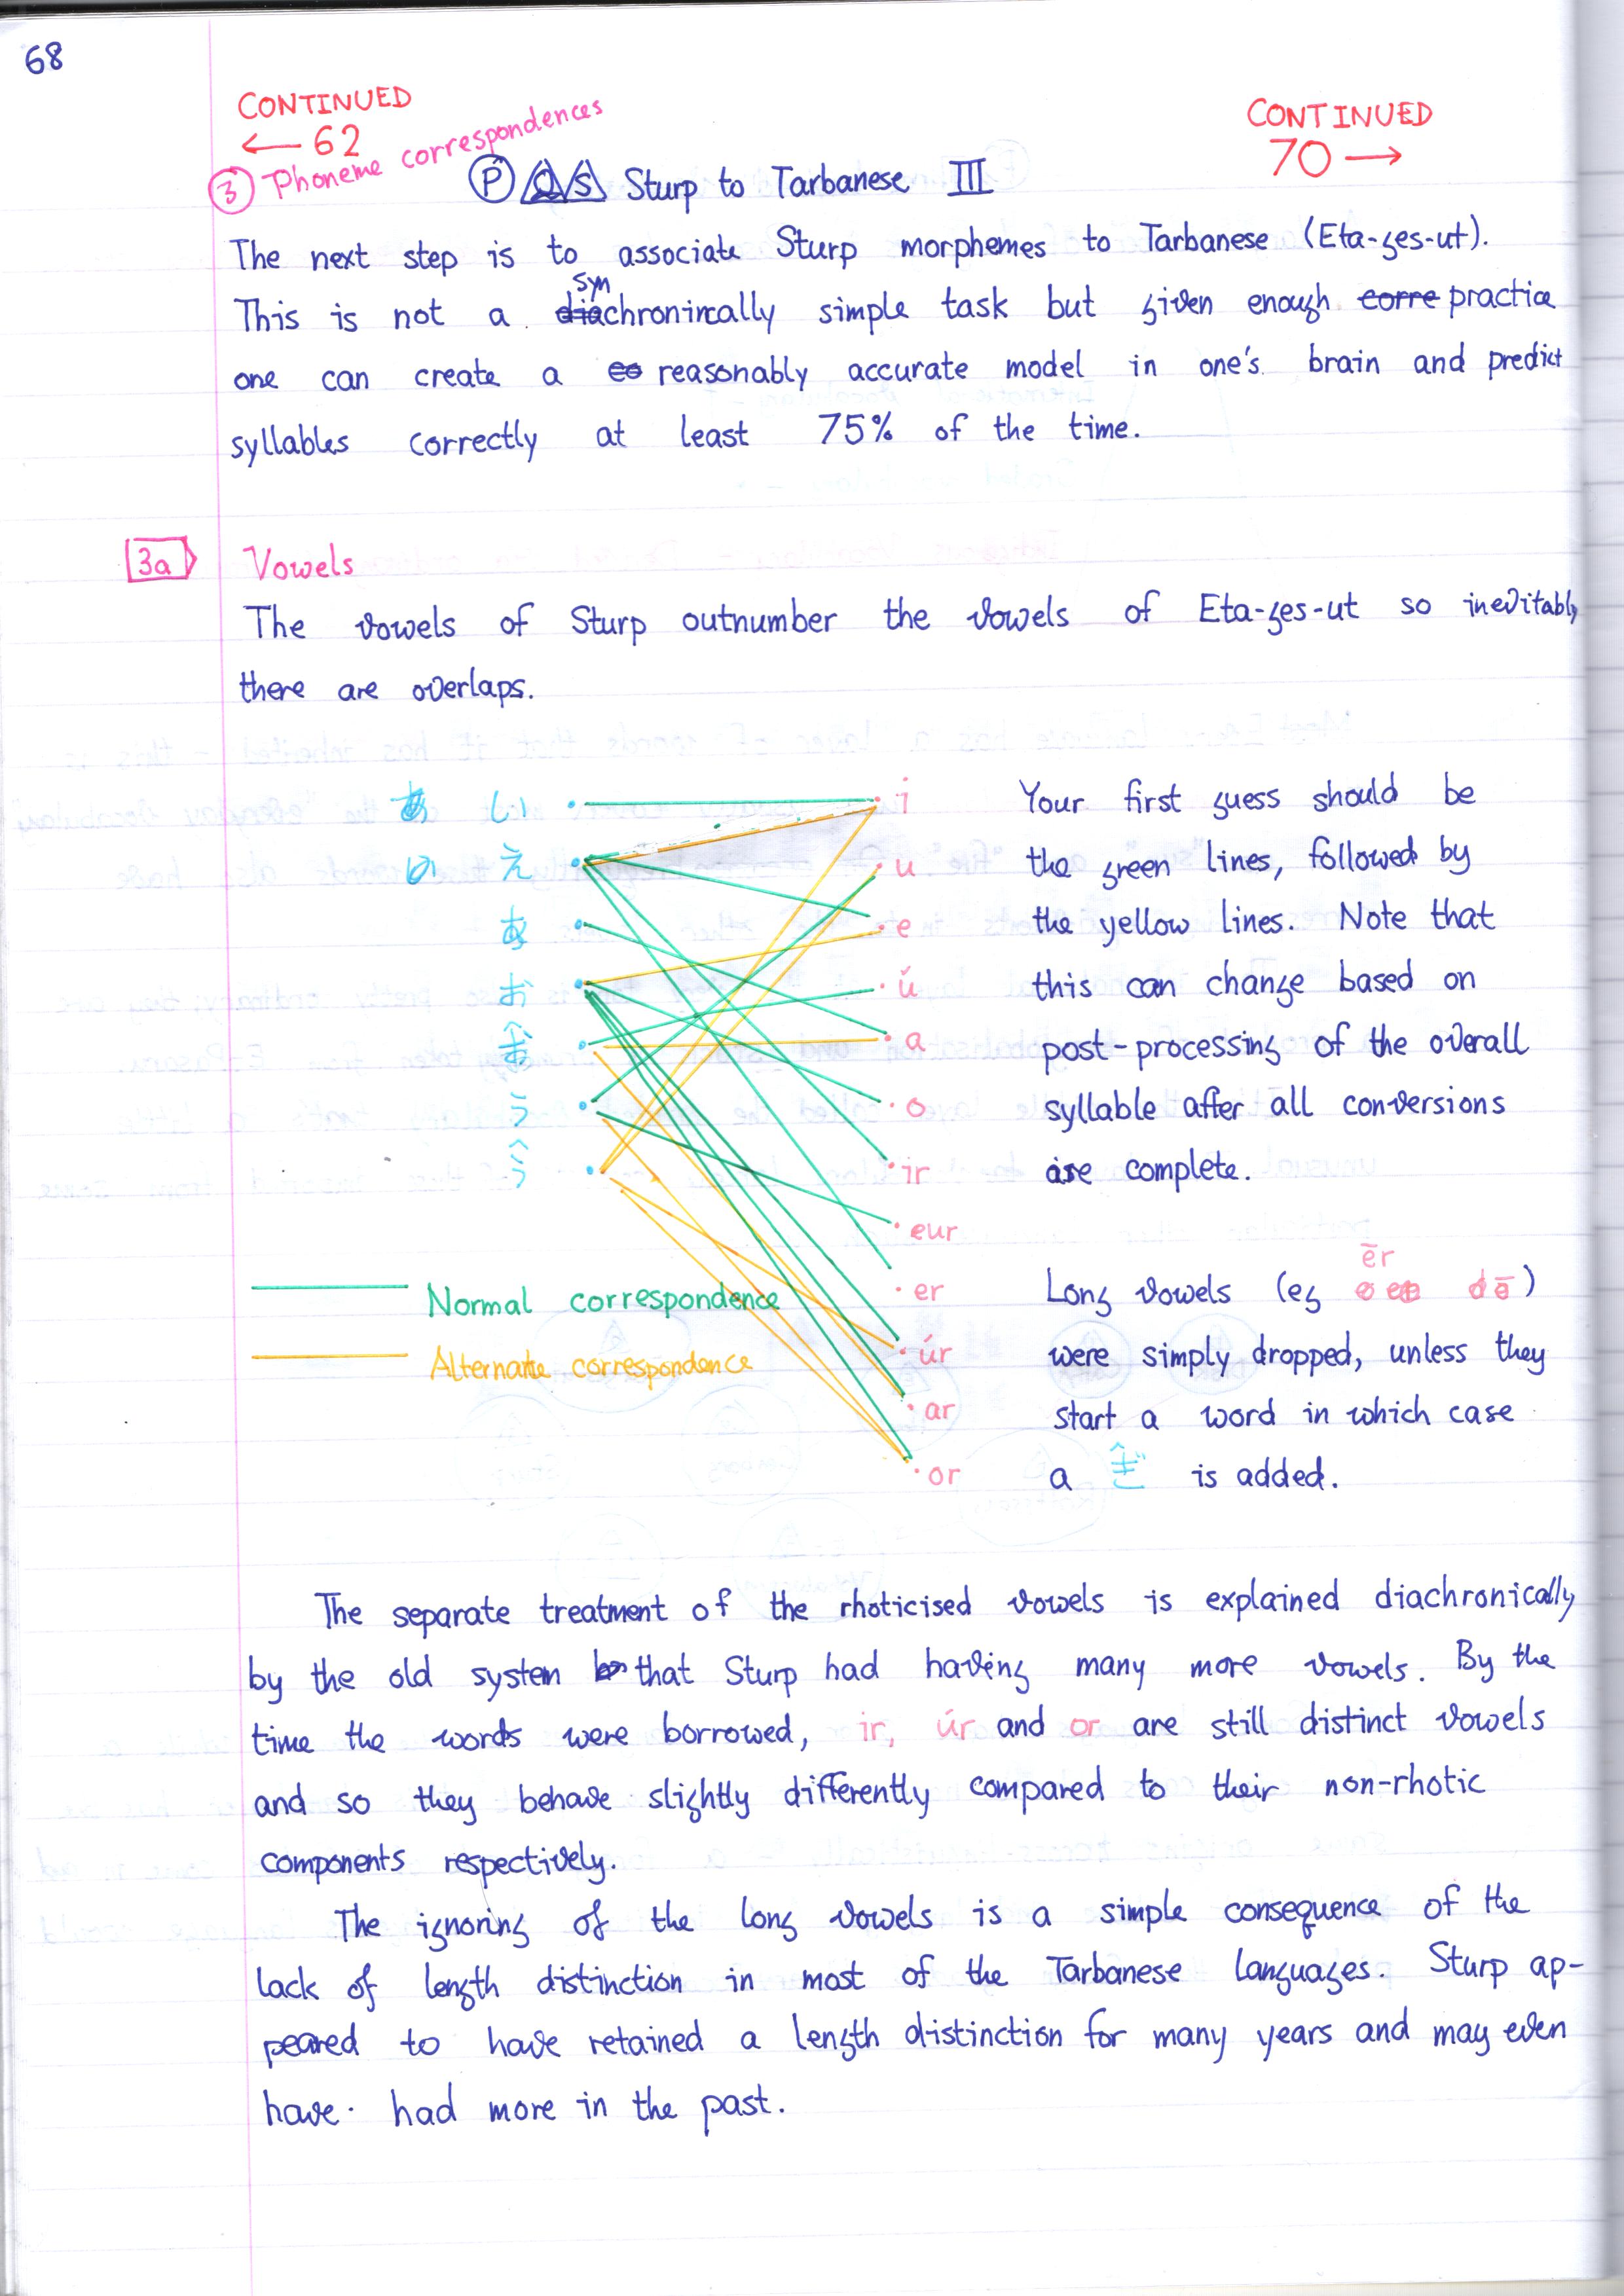 68
CONTINUED
← 62
CONTINUED
70 →
③ Phoneme correspondences
Ⓟ Q S Sturp to Tarbanese III
The next step is to associate Sturp morphemes to Tarbanese (Eta-ges-ut).
syn
This is not a diachronincally simple task but given enough corre practice
one can create a co reasonably accurate model in one's brain and predict
syllables correctly at least 75% of the time.
3a Vowels
The vowels of Sturp outnumber the vowels of Eta-ges-ut so inevitably
there are overlaps.
あ い i
の え u
あ e
お ŭ
a
う o
ir
eur
er
úr
ar
or
Your first guess should be
the green lines, followed by
the yellow lines. Note that
this can change based on
post-processing of the overall
syllable after all conversions
are complete.
Normal correspondence
Alternate correspondence
ēr
Long vowels (eg dā)
were simply dropped, unless they
start a word in which case
a is added.
The separate treatment of the rhoticised vowels is explained diachronically
by the old system that Sturp had having many more vowels. By the
time the words were borrowed, ir, úr and or are still distinct vowels
and so they behave slightly differently compared to their non-rhotic
components respectively.
The ignoring of the long vowels is a simple consequence of the
lack of length distinction in most of the Tarbanese languages. Sturp ap-
peared to have retained a length distinction for many years and may even
have had more in the past.